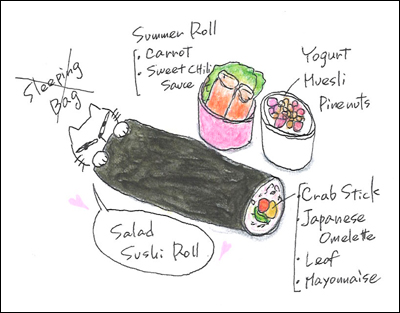 Summer Roll
• Carrot
• Sweet Chili
Sauce
Yogurt
Muesli
Pinenuts
Sleeping
Bag
Salad
Sushi Roll
• Crab Stick
• Japanese
Omelette
• Leaf
• Mayonnaise